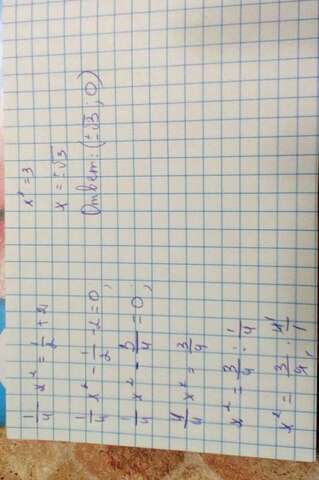 1/4 x² = 1/2 + 2,
1/4 x² - 1/2 - 2 = 0,
1/4 x² - 3/4 = 0,
1/4 x² = 3/4
x² = 3/4 : 1/4
x² = 3/4 · 4/1,
x² = 3
x = ±√3
Ответ: (±√3; 0)